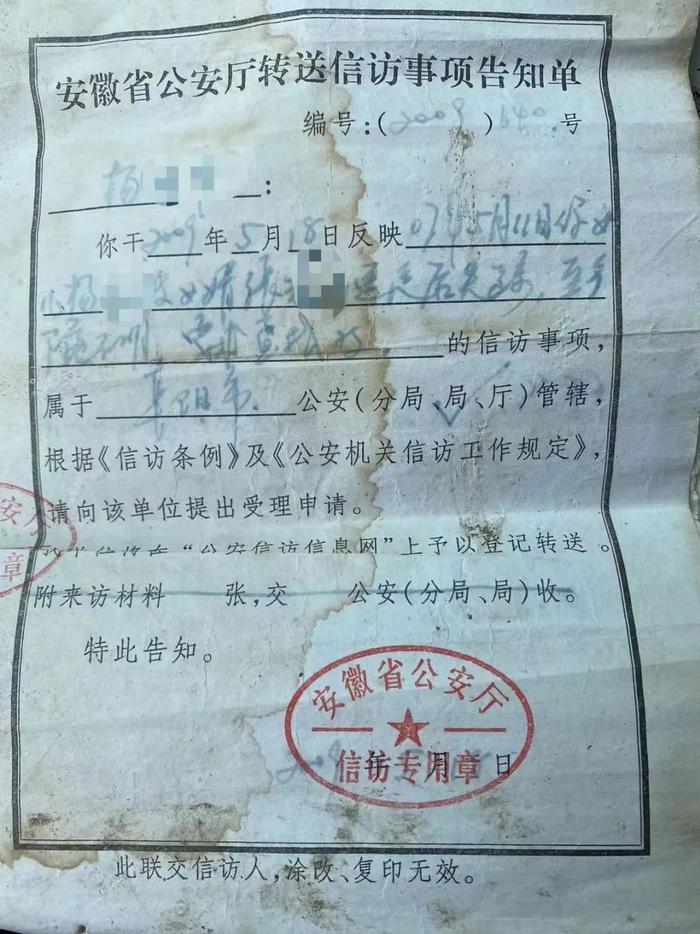 安徽省公安厅转送信访事项告知单
编号:(2009)640号
杨 :
你于2009年5月18日反映07年5月11日你女
儿杨 女婿张 后失踪,至今
下落不明, 的信访事项,
属于阜阳市公安(分局、局、厅)管辖,
根据《信访条例》及《公安机关信访工作规定》,
请向该单位提出受理申请。
“公安信访信息网”上予以登记转送。
附来访材料 张,交 公安(分局、局)收。
特此告知。
安徽省公安厅
信访专用章
2009年5月18日
安厅
章
此联交信访人,涂改、复印无效。